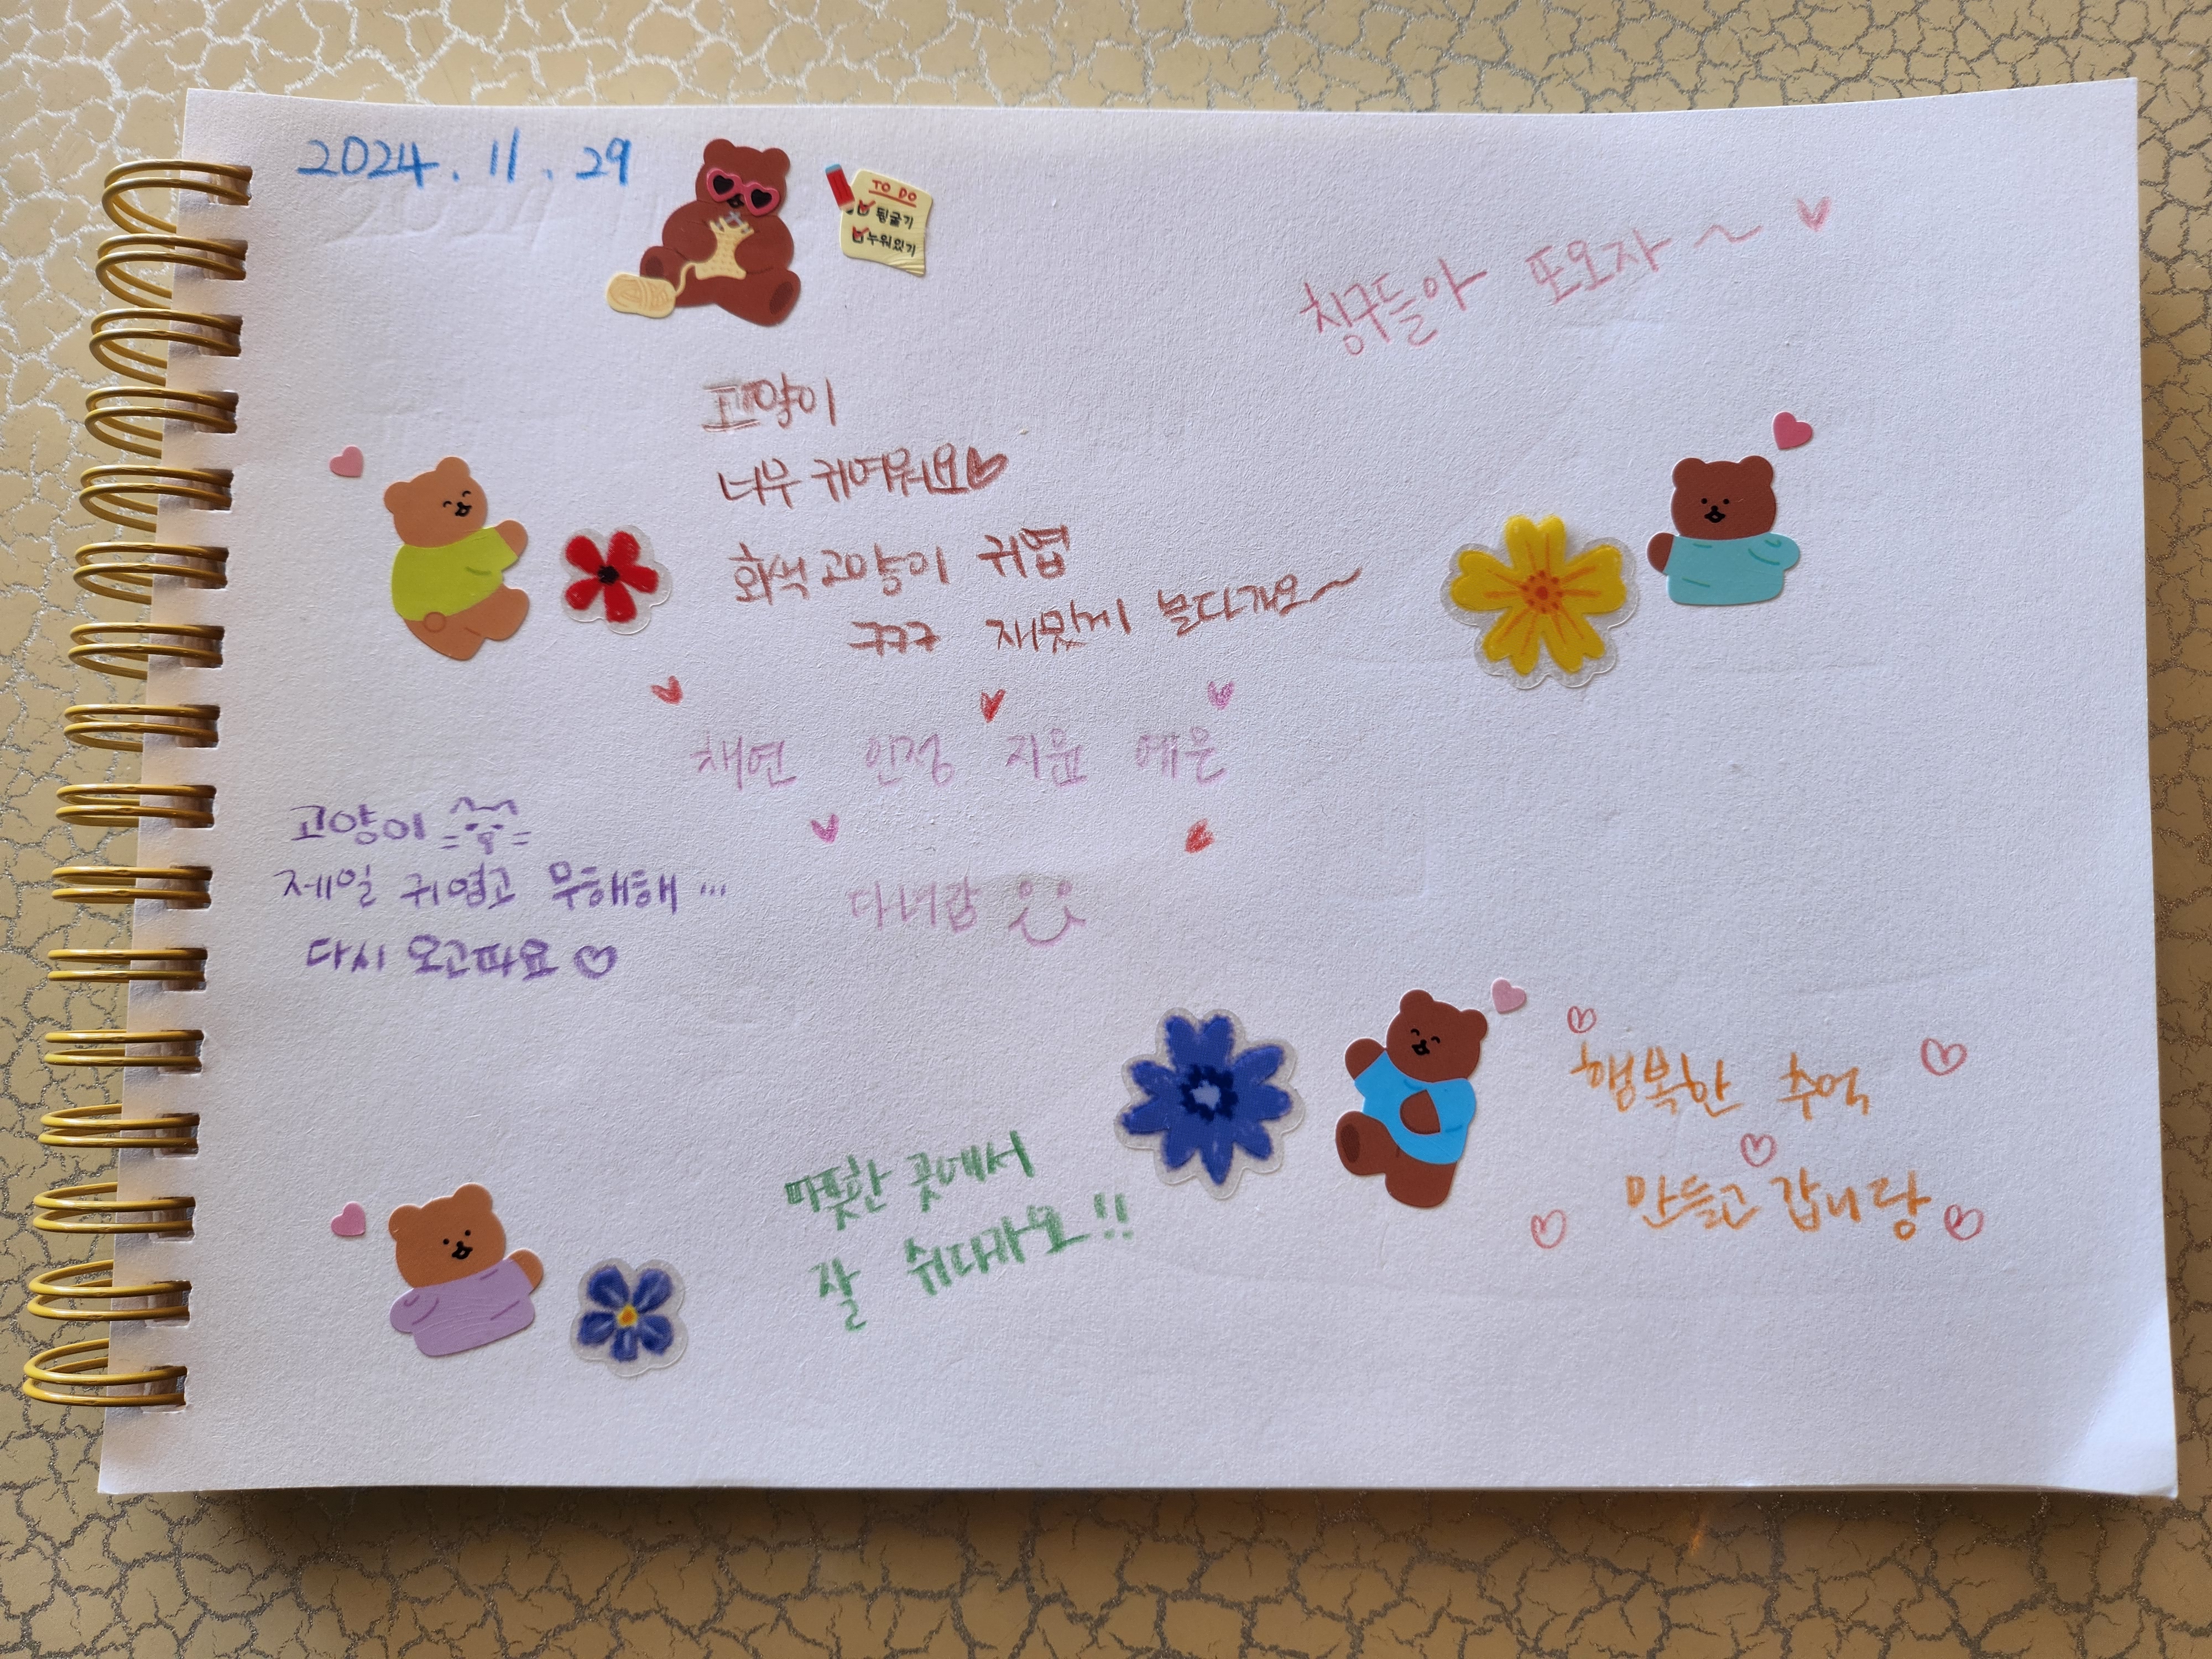 2024.11.29
TO DO
뒹굴기
누워있기
칭구들아 또오자~♥
고양이
너무 귀여워요♡
회색고양이 귀엽
ㅋㅋㅋ 재밌게 놀다가요~
채연 인정 지윤 예은
고양이
제일 귀엽고 무해해...
다녀감
다시 오고파요♡
행복한 추억
만들고 갑니당
따뜻한 곳에서
잘 쉬다가요!!